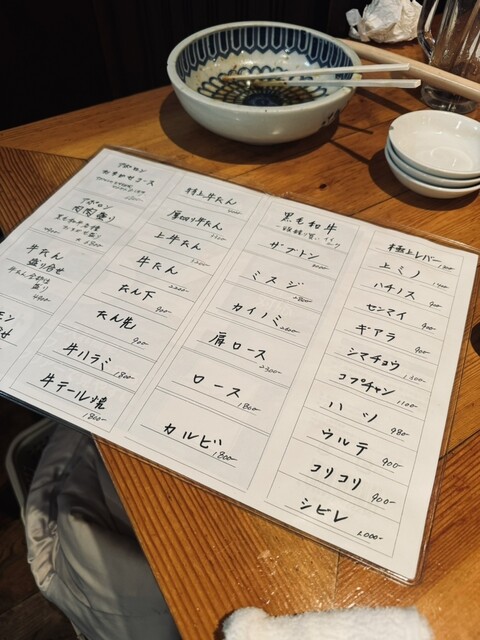 アポロン
おまかせコース
アポロン
肉肉盛り
黒毛和牛各種
1800
牛たん
盛り合せ
牛たん全部位
盛り
特上牛たん
厚切り牛たん
上牛たん
牛たん
たん下
900-
たん先
900-
牛ハラミ
1800-
牛テール焼
1800-
黒毛和牛
ザブトン
ミスジ
カイノミ
肩ロース
2300-
ロース
1800-
カルビ
1800-
極上レバー
上ミノ
ハチノス
900-
センマイ
900-
ギアラ
900-
シマチョウ
コプチャン
1100-
ハツ
980-
ウルテ
900-
コリコリ
900-
シビレ
2000-